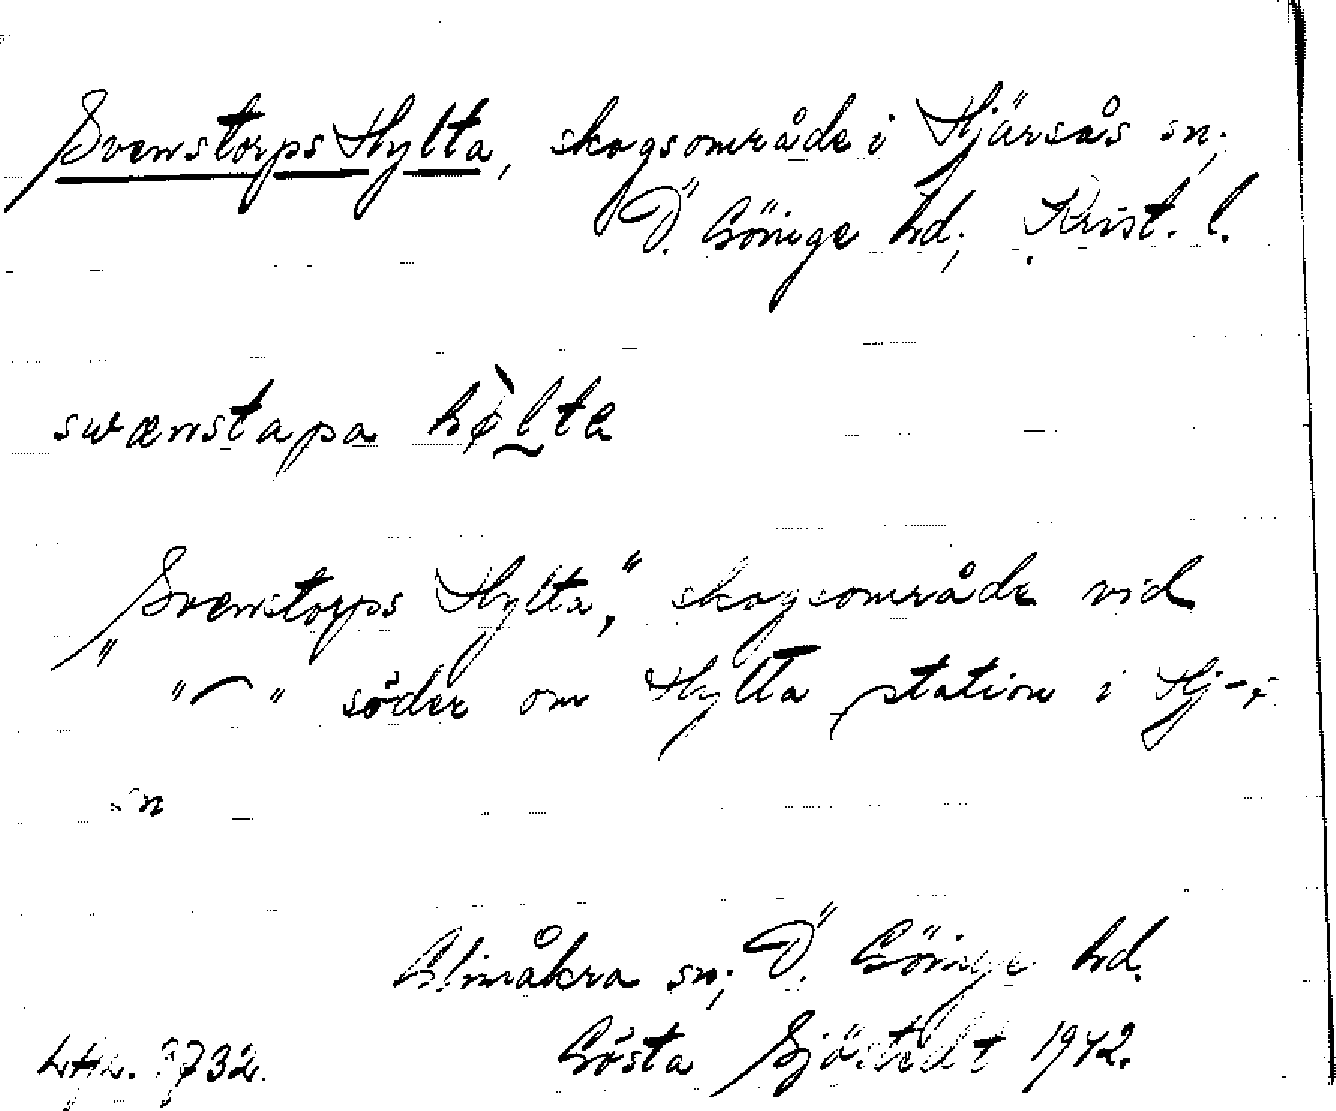 Svenstorps Hylta, skogsområde i Hjärsås sn;
Ö. Göinge hd; Krist. l.
svænstapa hø̀lta
"Svenstorps Hylta," skogsområde vid
"—" söder om Hylta station i Hj-s
sn
Glimåkra sn; Ö. Göinge hd.
Gösta Sjöstedt 1942.
3732.